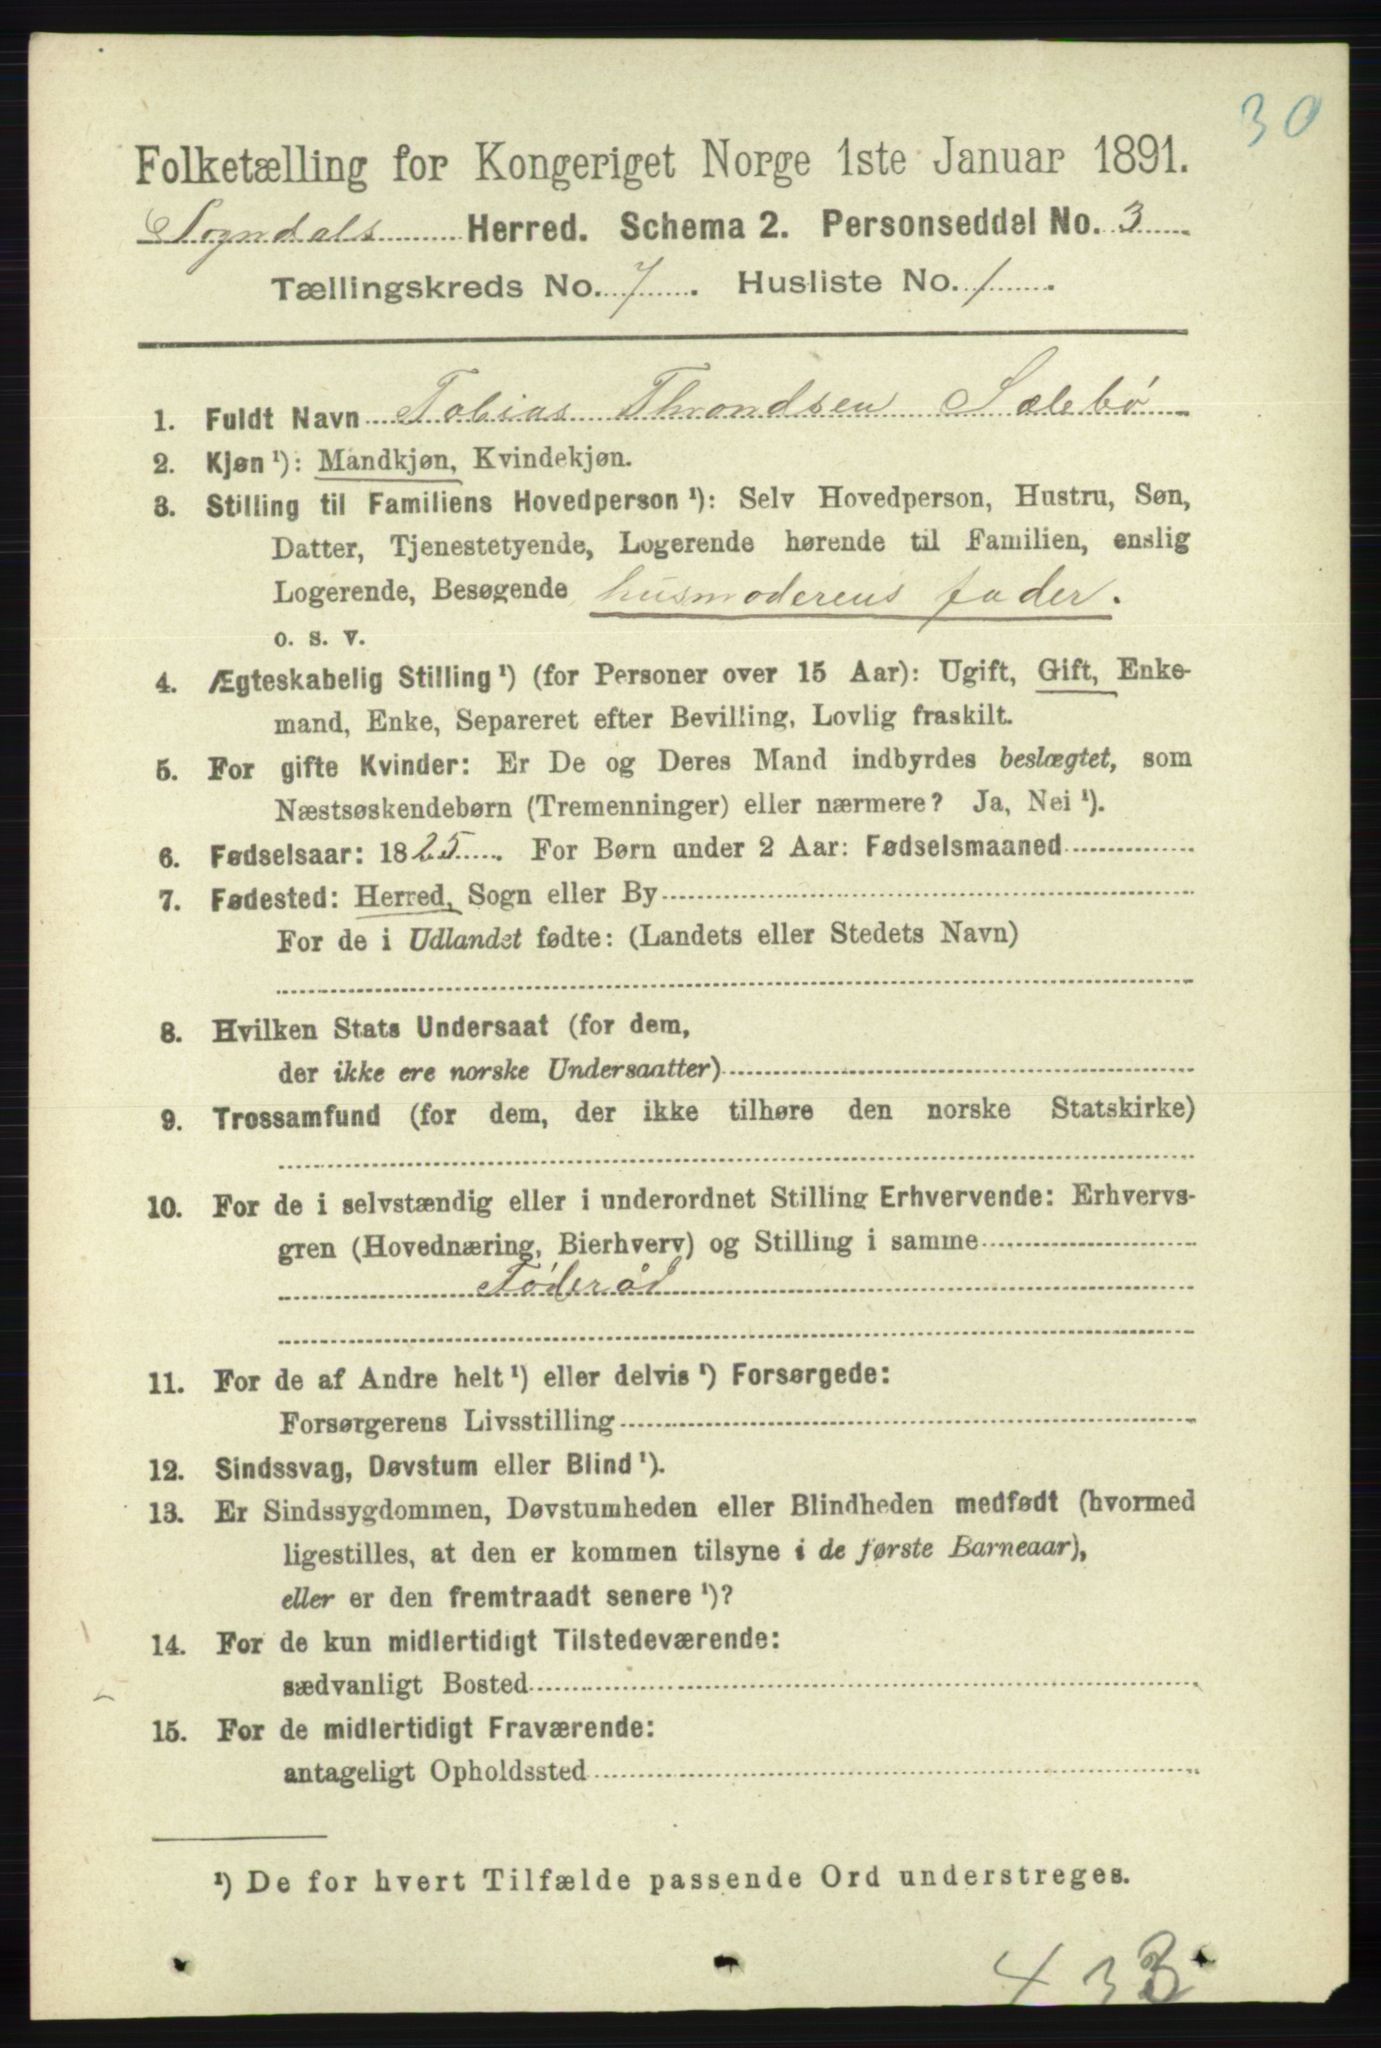 30
Folketælling for Kongeriget Norge 1ste Januar 1891.
Sogndals Herred. Schema 2. Personseddel No. 3
Tællingskreds No. 7. Husliste No. 1.
1. Fuldt Navn Tobias Throndsen Sælebø
2. Kjøn ¹): Mandkjøn, Kvindekjøn.
3. Stilling til Familiens Hovedperson ¹): Selv Hovedperson, Hustru, Søn,
Datter, Tjenestetyende, Logerende hørende til Familien, enslig
Logerende, Besøgende husmoderens fader.
o. s. v.
4. Ægteskabelig Stilling ¹) (for Personer over 15 Aar): Ugift, Gift, Enke-
mand, Enke, Separeret efter Bevilling, Lovlig fraskilt.
5. For gifte Kvinder: Er De og Deres Mand indbyrdes beslægtet, som
Næstsøskendebørn (Tremenninger) eller nærmere? Ja, Nei ¹).
6. Fødselsaar: 1825. For Børn under 2 Aar: Fødselsmaaned
7. Fødested: Herred, Sogn eller By
For de i Udlandet fødte: (Landets eller Stedets Navn)
8. Hvilken Stats Undersaat (for dem,
der ikke ere norske Undersaatter)
9. Trossamfund (for dem, der ikke tilhøre den norske Statskirke)
10. For de i selvstændig eller i underordnet Stilling Erhvervende: Erhvervs-
gren (Hovednæring, Bierhverv) og Stilling i samme
Føderåd
11. For de af Andre helt ¹) eller delvis ¹) Forsørgede:
Forsørgerens Livsstilling
12. Sindssvag, Døvstum eller Blind ¹).
13. Er Sindssygdommen, Døvstumheden eller Blindheden medfødt (hvormed
ligestilles, at den er kommen tilsyne i de første Barneaar),
eller er den fremtraadt senere ¹)?
14. For de kun midlertidigt Tilstedeværende:
sædvanligt Bosted
15. For de midlertidigt Fraværende:
antageligt Opholdssted
¹) De for hvert Tilfælde passende Ord understreges.
433